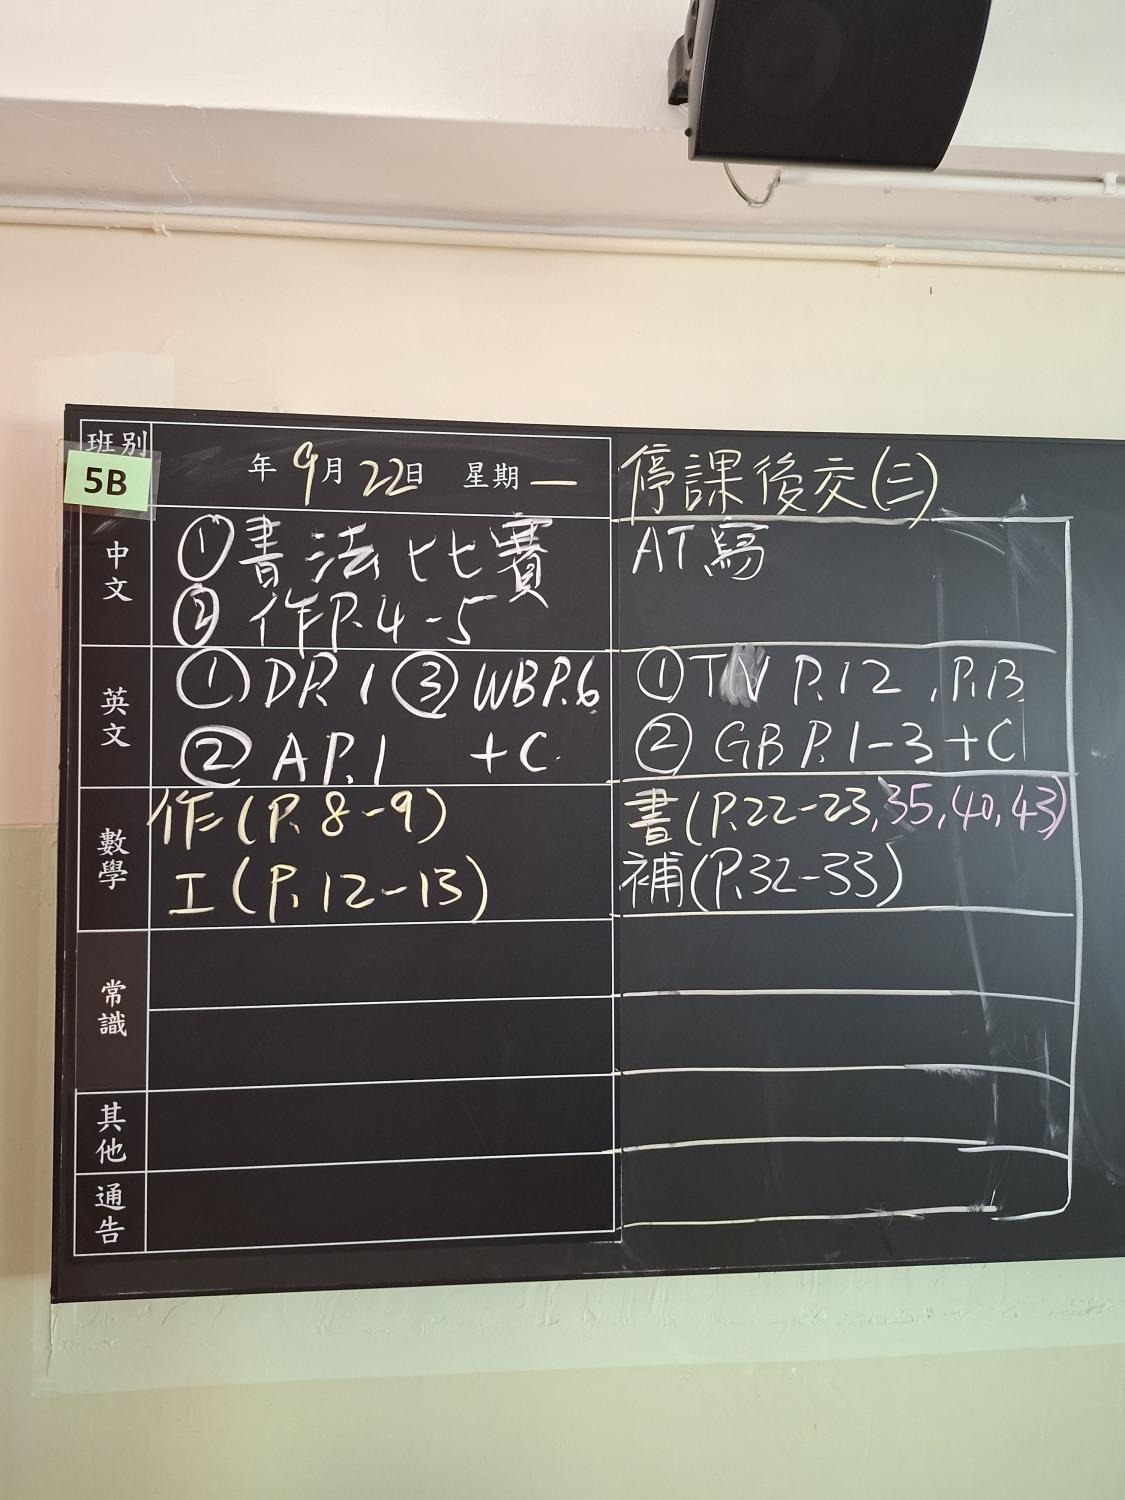 班别
5B
年 9月 22日 星期一
停課後交(三)
中文
①書法比賽
②作P.4-5
AT寫
英文
①DP.1 ③WBP.6
②AP.1 +C
①T P.12, P.13
②GB P.1-3+C
數學
作(P.8-9)
工(P.12-13)
書(P.22-23,35,40,43)
補(P.32-33)
常識
其他
通告